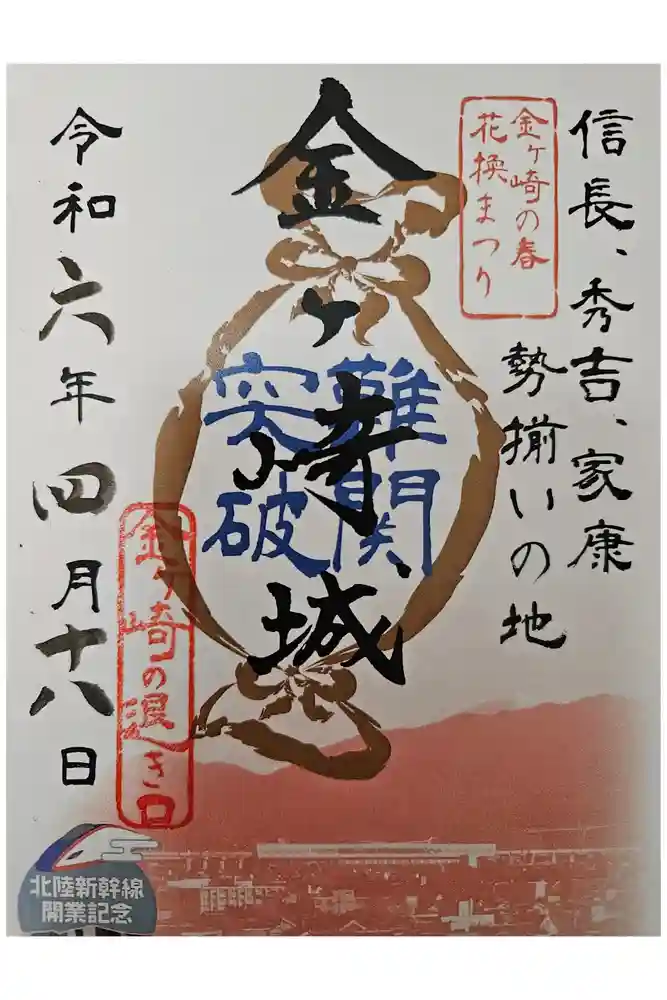 信長、秀吉、家康
勢揃いの地
金ヶ崎の春
花換まつり
金ヶ崎城
難関
突破
令和六年四月十八日
金ヶ崎の退き口
北陸新幹線
開業記念